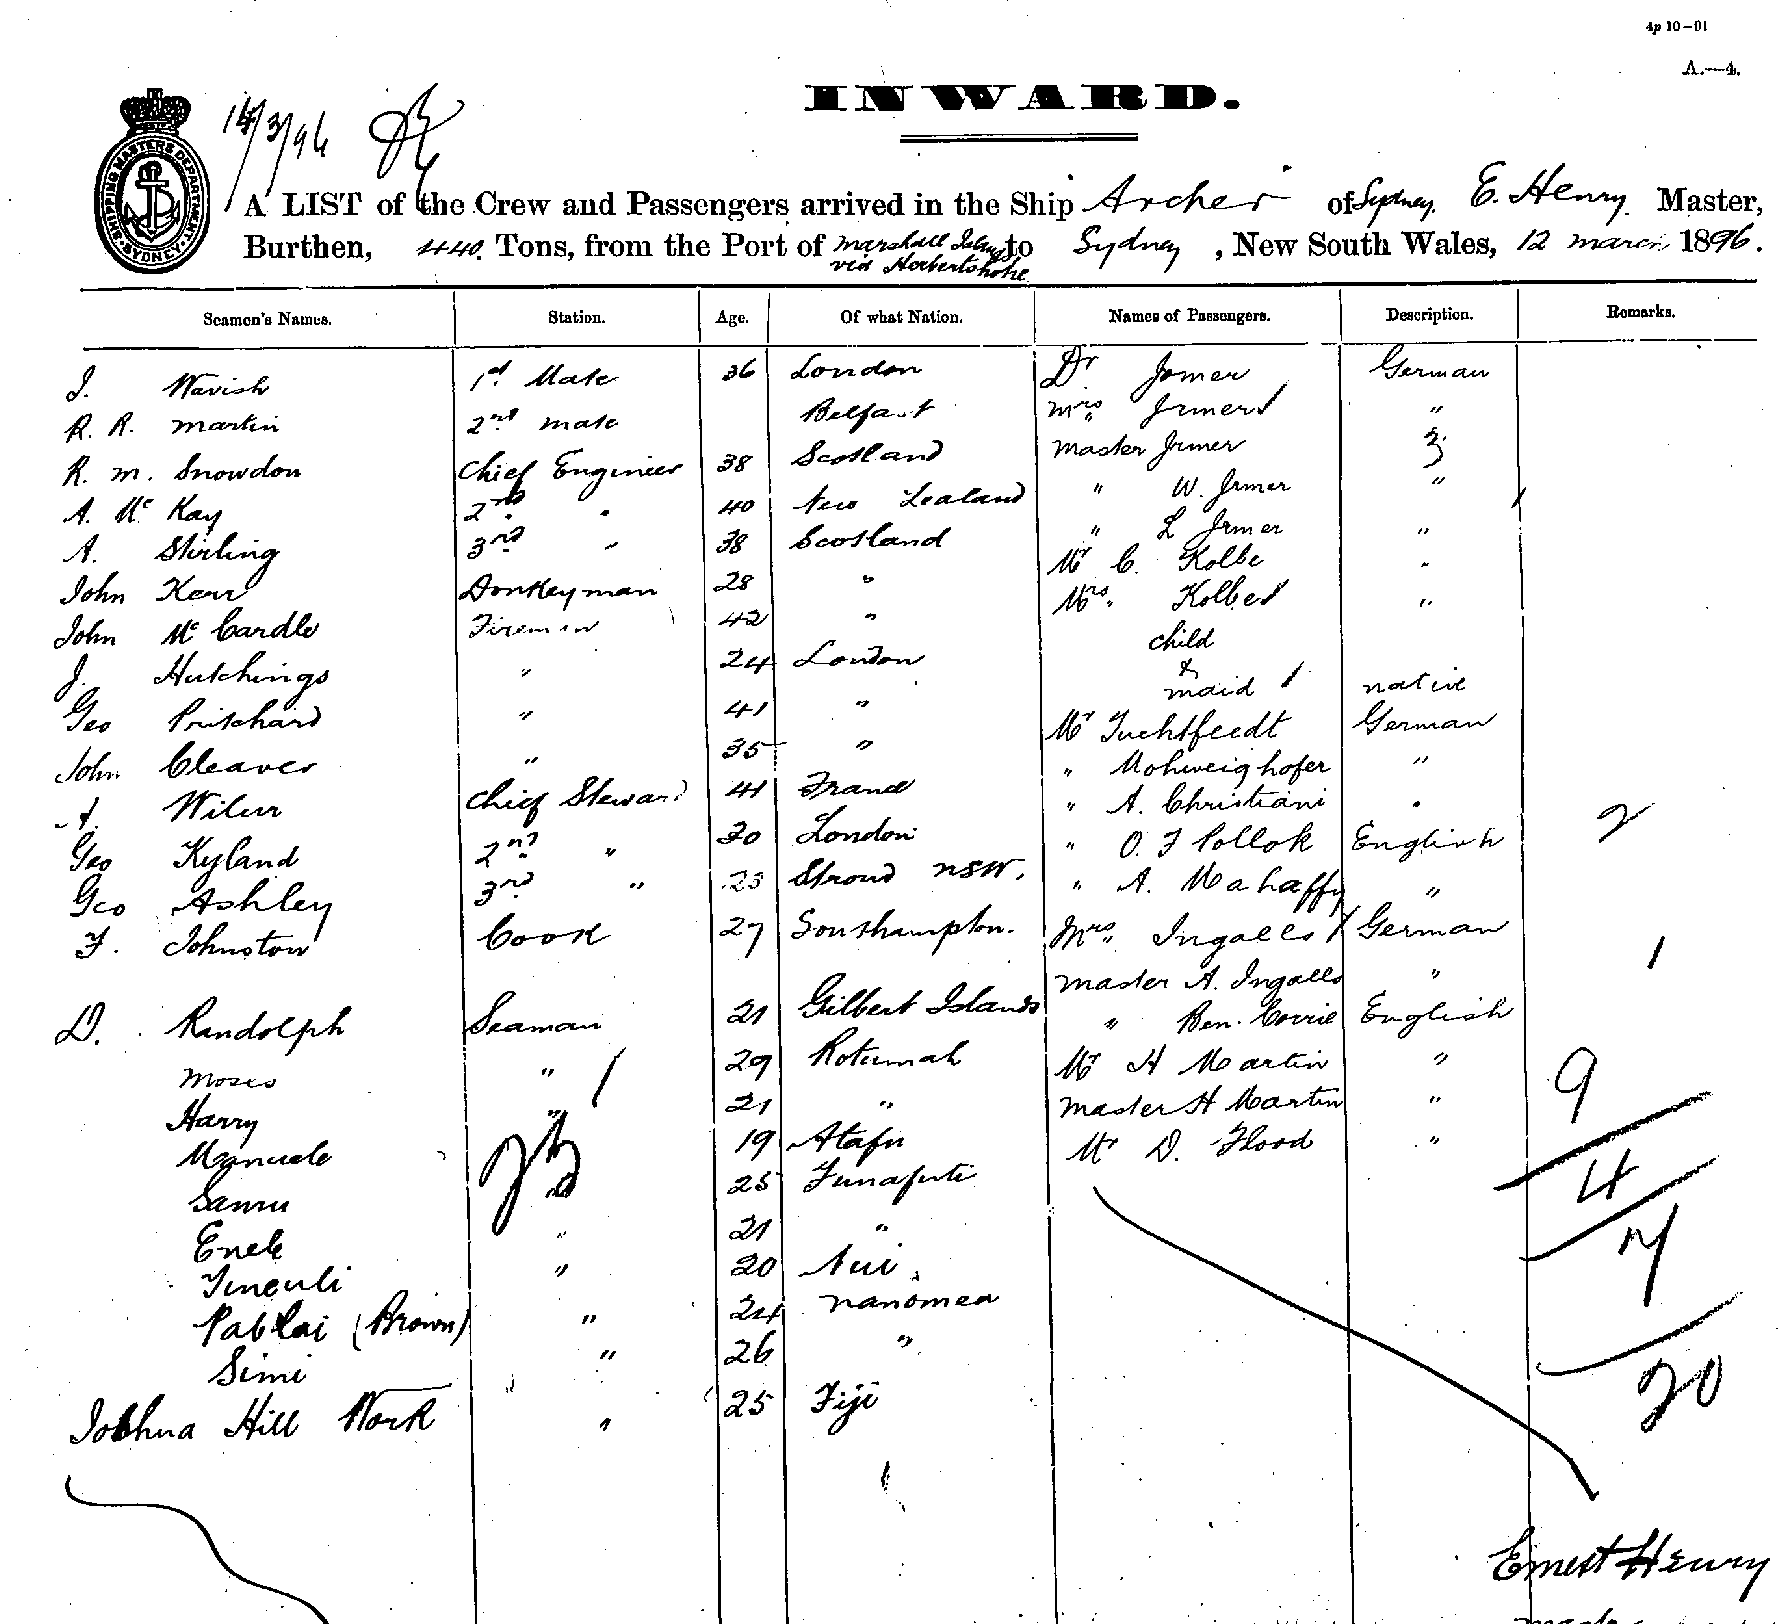 4p 10-01
A.—4.
INWARD.
14/3/96
SHIPPING MASTERS DEPARTMENT SYDNEY
A LIST of the Crew and Passengers arrived in the Ship Archer of Sydney. E. Henry Master,
Burthen, 440 Tons, from the Port of Marshall Islands via Herbertshohe to Sydney, New South Wales, 12 March 1896.
Seamen's Names. Station. Age. Of what Nation. Names of Passengers. Description. Remarks.
J. Wavish 1st Mate 36 London Dr Jrmer German
R. R. Martin 2nd mate Belfast Mrs Jrmer 1 "
R. M. Snowdon Chief Engineer 38 Scotland Master Jrmer 3
A. Mc Kay 2nd " 40 New Zealand " W. Jrmer "
A. Stirling 3rd " 38 Scotland " L Jrmer "
John Kerr Donkeyman 28 " Mr C. Kolbe "
John Mc Cardle Fireman 42 " Mrs. Kolbe 1 "
J. Hutchings " 24 London child
& maid 1 native
Geo Pritchard " 41 " Mr Tuchtfeedt German
John Cleaver " 35 " " Mohweighofer "
A. Chief Steward 41 France " A. Christiani "
Geo Kyland 2nd " 30 London " O. F Pollok English 2
Geo Ashley 3rd " 23 Stroud NSW. " A. Mahaffy "
F. Johnston Cook 27 Southampton. Mrs. Ingalls 1 German
Master A. Ingalls " 1
D. Randolph Seaman 21 Gilbert Islands " Ben. Corrie English
Moses " 29 Rotumah Mr H Martin " 9
Harry " 21 " Master H Martin "
Manuele 19 Atafu Mr D. Flood " 4
Samu 25 Funafuti
Enele " 21 "
" 20 Nui
(Brown) " 24 Nanomea
Simi " 26 "
20
Joshua Hill Work " 25 Fiji
Ernest Henry